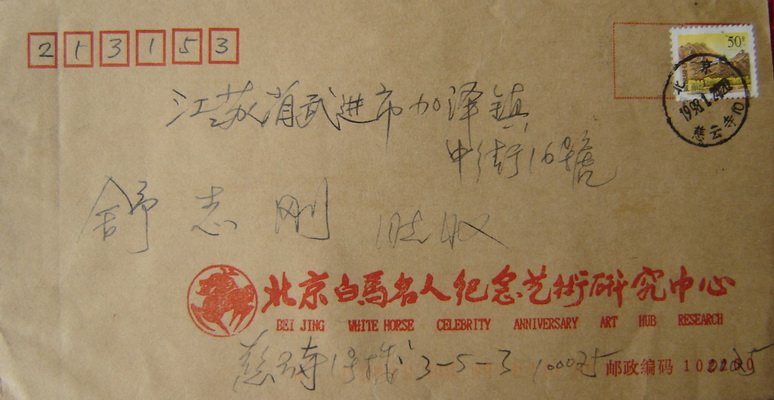 213153
50分
北京
1998.1.
慈云寺
江苏省武进市加泽镇
中街16号
舒志刚 收
北京白馬名人纪念艺術研究中心
BEI JING WHITE HORSE CELEBRITY ANNIVERSARY ART HUB RESEARCH
慈云寺1号楼 3-5-3 邮政编码 100025